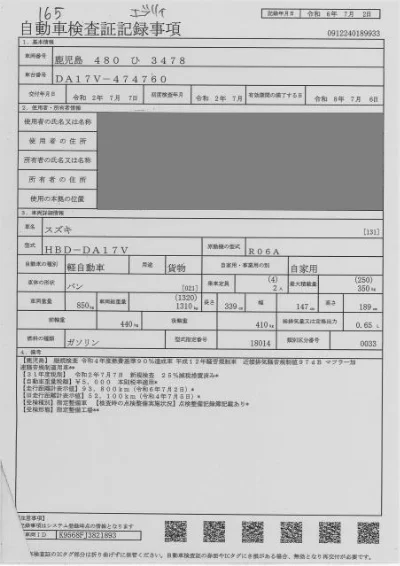 165 エブリィ
記録年月日 令和 6年 7月 2日
自動車検査証記録事項
0912240189933
1. 基本情報
車両番号 鹿児島 480 ひ 3478
車台番号 DA17V-474760
交付年月日 令和 2年 7月 7日 初度検査年月 令和 2年 7月 有効期間の満了する日 令和 8年 7月 6日
2. 使用者・所有者情報
使用者の氏名又は名称
使用者の住所
所有者の氏名又は名称
所有者の住所
使用の本拠の位置
3. 車両詳細情報
車名 スズキ [131]
型式 HBD-DA17V 原動機の型式 R06A
自動車の種別 軽自動車 用途 貨物 自家用・事業用の別 自家用
車体の形状 バン [021] 乗車定員 (4) 2人 最大積載量 (250) 350kg
車両重量 850kg 車両総重量 (1320) 1310kg 長さ 339cm 幅 147cm 高さ 189cm
前軸重 440kg 後軸重 410kg 総排気量又は定格出力 0.65L
燃料の種類 ガソリン 型式指定番号 18014 類別区分番号 0033
4. 備考
【鹿児島】 継続検査 令和4年度燃費基準90%達成車 平成12年軽音規制車 近接排気騒音規制値97dB マフラー加
速騒音規制適用車**
【31年度税制】 令和2年7月7日 新規検査 25%減税措置済み*
【自動車重量税額】¥5,000 本則税率適用*
【走行距離計表示値】93,800km(令和6年7月2日)*
【旧走行距離計表示値】52,100km(令和4年7月5日)*
【受検種別】指定整備車 【検査時の点検整備実施状況】点検整備記録簿記載あり*
【受検形態】指定整備工場**
[注意事項]
記録事項はシステム登録時点の情報となります
車両ID K9568FJ3821893